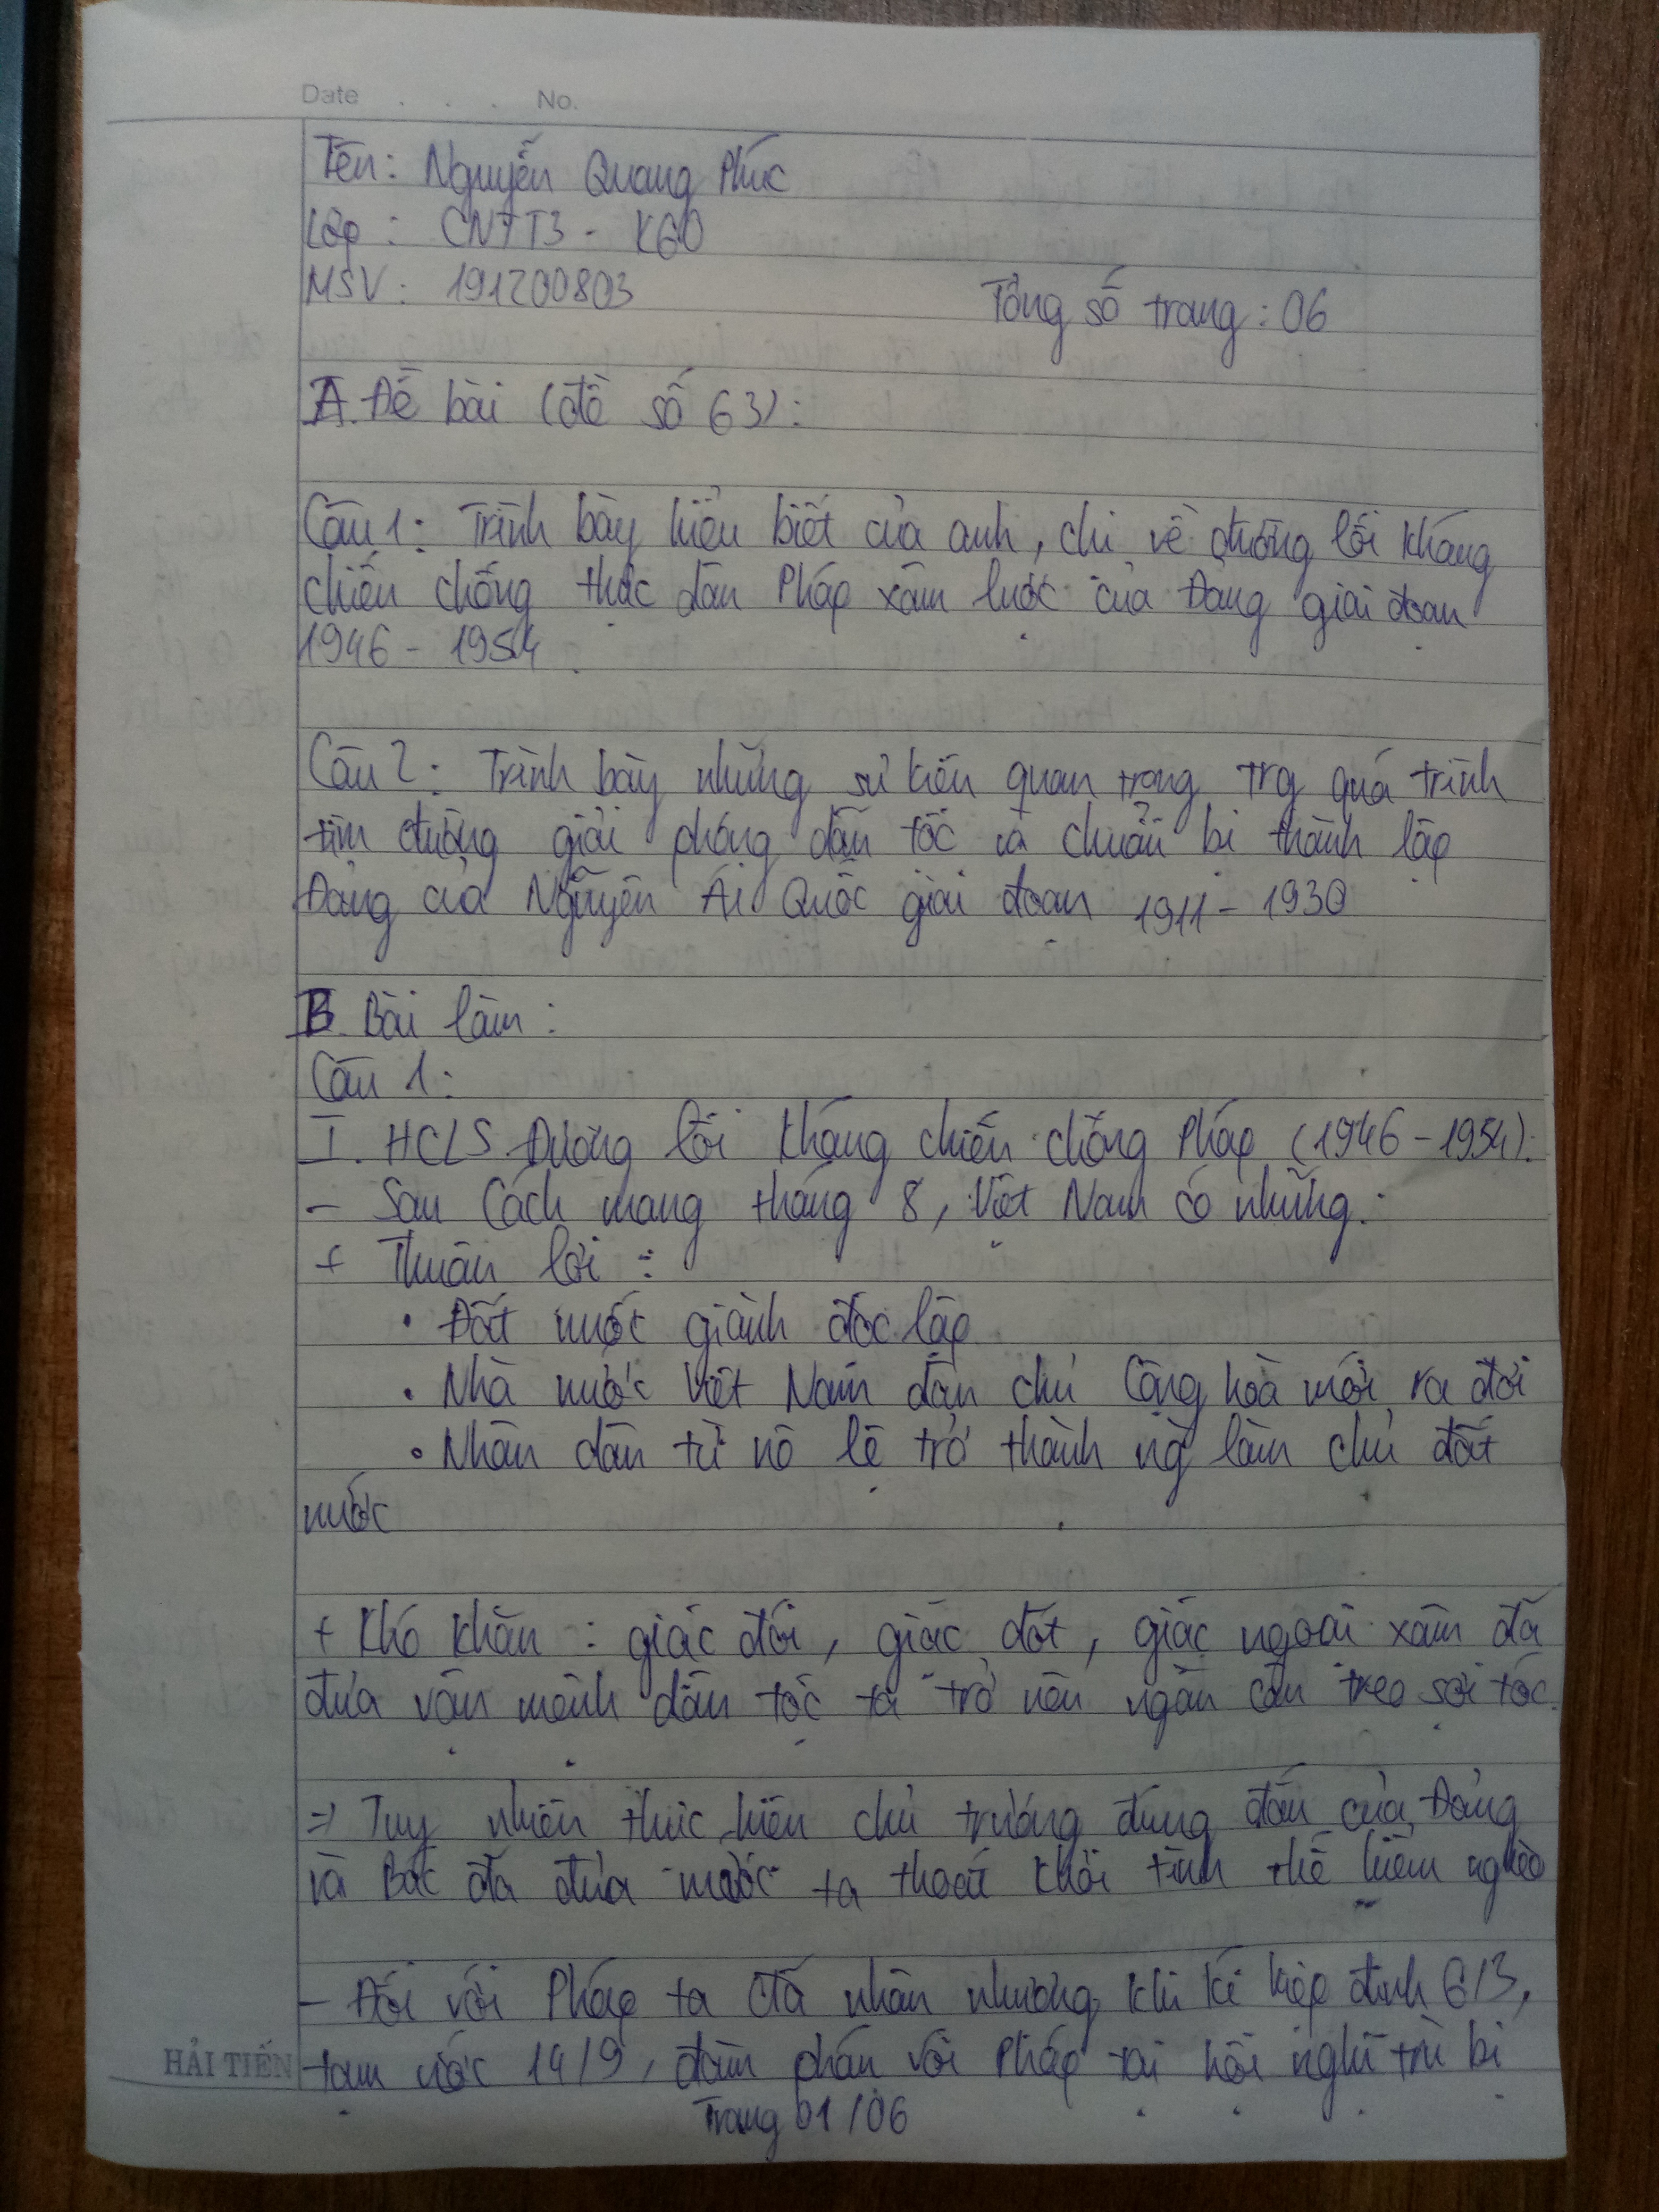 Date . . . No.
Tên: Nguyễn Quang Phúc
Lớp: CNTT3 - K60
MSV: 191200803
Tổng số trang: 06
A. Đề bài (đề số 63):
Câu 1: Trình bày hiểu biết của anh, chị về đường lối kháng
chiến chống thực dân Pháp xâm lược của Đảng giai đoạn
1946 - 1954
Câu 2: Trình bày những sự kiện quan trọng trg quá trình
tìm đường giải phóng dân tộc và chuẩn bị thành lập
Đảng của Nguyễn Ái Quốc giai đoạn 1911 - 1930
B. Bài làm:
Câu 1:
I. HCLS Đường lối kháng chiến chống Pháp (1946 - 1954):
- Sau Cách mạng tháng 8, Việt Nam có những:
+ Thuận lợi:
• Đất nước giành độc lập
• Nhà nước Việt Nam dân chủ Cộng hoà mới ra đời
• Nhân dân từ nô lệ trở thành ng làm chủ đất
nước
+ Khó khăn: giặc đói, giặc dốt, giặc ngoại xâm đã
đưa vận mệnh dân tộc ta trở nên ngàn cân treo sợi tóc.
=> Tuy nhiên thực hiện chủ trương đúng đắn của Đảng
và Bác đã đưa nước ta thoát khỏi tình thế hiểm nghèo
- Đối với Pháp ta đã nhân nhượng khi kí hiệp định 6/3,
tạm ước 14/9, đàm phán với Pháp tại hội nghị trù bị
HẢI TIẾN
Trang 01/06